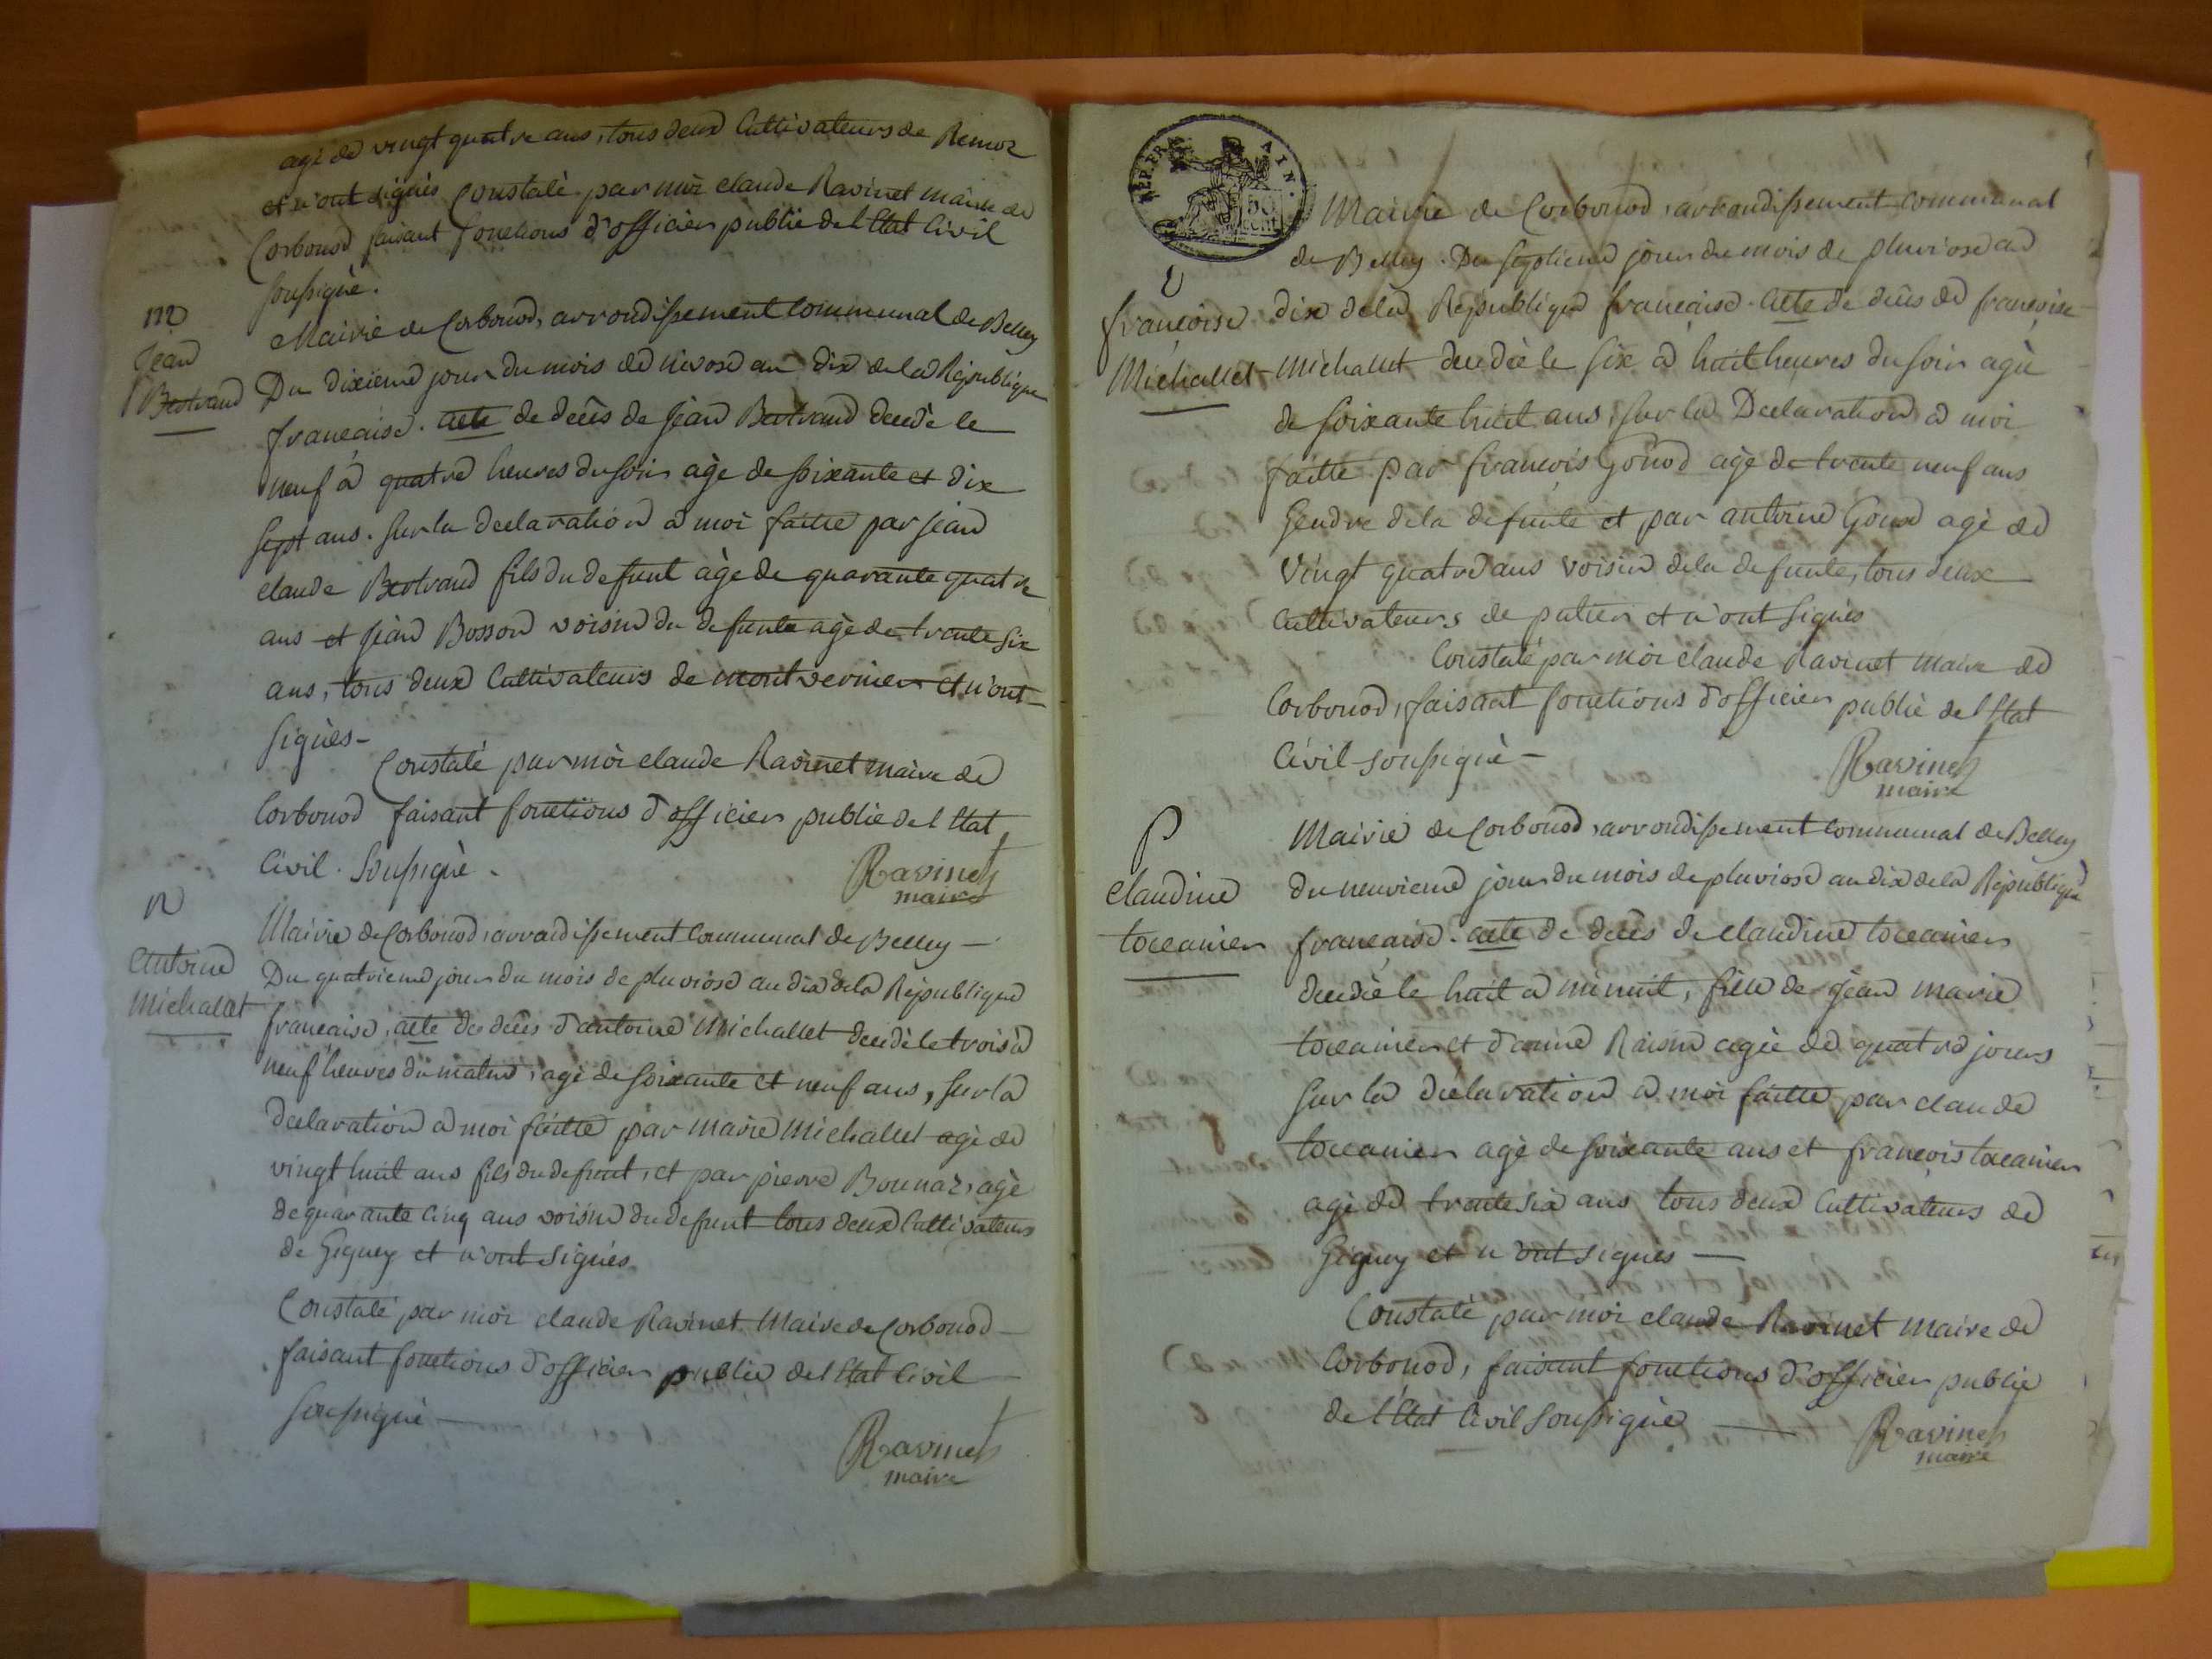 agé de vingt quatre ans, tous deux Cultivateurs de Remoz
et n'ont signés Constalé par moi claude Ravinet maire de
Corbonod faisant fonctions d'officier public de l'Etat Civil
soussigné.
m
Jean
Bertrand
Mairie de Corbonod, arrondissement Communal de Belley
Du dixieme jour du mois de nivose an dix de la République
française. acte de décès de Jean Bertrand decedé le
neuf à quatre heures du soir agé de soixante et dix
sept ans. sur la declaration à moi faitte par jean
claude Bertrand fils du defunt agé de quarante quatre
ans et Jean Bosson voisin du defunte agé de trente six
ans, tous deux Cultivateurs de montvernier et n'ont
signés-
Constalé par moi claude Ravinet maire de
Corbonod faisant fonctions d'officier public de l'Etat
Civil. Soussigné.
Ravinet
maire
n
antoine
michallet
Mairie de Corbonod, arrondissement Communal de Belley -
Du quatrieme jour du mois de pluviose an dix de la République
française, acte de décès d'antoine Michallet decedé le trois à
neuf heures du matin, agé de soixante et neuf ans, sur la
declaration à moi faitte par marie Michallet agé de
vingt huit ans fils du defunt, et par pierre Bounaz, agé
de quarante cinq ans voisin du defunt tous deux Cultivateurs
de Gigney et n'ont signés
Constalé par moi claude Ravinet Maire de Corbonod
faisant fonctions d'officier public de l'Etat Civil
soussigné
Ravinet
maire
DEP. AIN.
50
CENT
Mairie de Corbonod, arrondissement Communal
de Belley. Du septieme jour du mois de pluviose an
françoise
Michallet
dix de la République française. acte de décès de françoise
Michallet decedée le six à huit heures du soir agée
de soixante huit ans, sur la Declaration à moi
faitte par françois Gonod agé de trente neuf ans
Gendre de la defunte et par antoine Gonod agé de
Vingt quatre ans voisin de la defunte, tous deux
Cultivateurs de putier et n'ont signés
Constalé par moi claude Ravinet maire de
Corbonod, faisant fonctions d'officier public de l'Etat
Civil soussigné -
Ravinet
maire
P
Claudine
toccanier
Mairie de Corbonod, arrondissement Communal de Belley
du neuvieme jour du mois de pluviose an dix de la République
française. acte de décès de claudine toccanier
decedée le huit à minuit, fille de jean marie
toccanier et d'anne Raisin agée de quatre jours
sur la declaration à moi faitte par claude
toccanier agé de soixante ans et françois toccanier
agé de trente six ans tous deux Cultivateurs de
Gigney et n'ont signés -
Constalé par moi claude Ravinet maire de
Corbonod, faisant fonctions d'officier public
de l'Etat Civil soussigné
Ravinet
maire